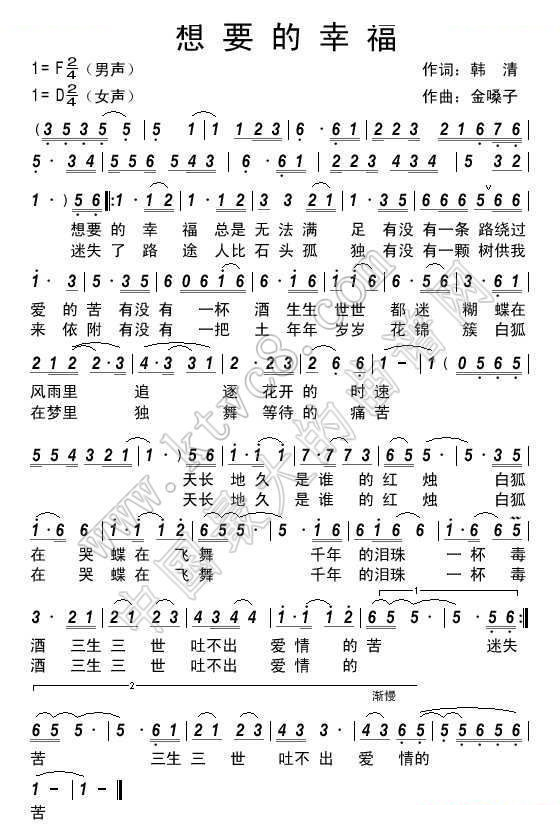 想要的幸福
1=F2/4（男声） 作词：韩 清
1=D2/4（女声） 作曲：金嗓子
(3 5 3 5 5 | 5 · 1 | 1 1 2 3 | 6 · 6 1 | 3 5 3 2 | 1 2 1 6 7 6
5 · 3 4 | 5 5 5 6 5 4 3 | 6 · 6 1 | 2 3 4 3 4 2 | 5 3 2
1 · ) 5 6 ‖: 1 · 1 2 | 1 · 1 2 | 3 3 2 1 | 1 · 3 5 | 6 6 6 5 6 7
想要 的 幸 福 总是 无 法 满 足 有没 有一条 路绕过
迷失 了 路 途 人比 石 头 孤 独 有没 有一颗 树供我
1 · 3 | 5 · 3 5 | 6 0 6 1 6 | 6 · 1 6 | 6 1 6 | 1 2 3 · | 5 · 3 5
爱 的 苦 有没 有 一杯 酒 生生 世世 都 迷 糊 蝶在
来 依 附 有没 有 一把 土 年年 岁岁 花 锦 簇 白狐
2 1 2 2 · 3 | 5 · 3 · 5 | 2 · 3 | 2 1 2 6 6 · | 1 - | 1 (0 5 6 5
风雨里 追 逐 花开 的 时 速
在梦里 独 舞 等待 的 痛 苦
5 5 4 3 2 1 | 1 · ) 5 6 | 1 · 1 1 | 1 · 7 · 7 | 7 7 3 | 5 · 5 6
天长 地 久 是 谁 的 红 烛 白狐
天长 地 久 是 谁 的 红 烛 白狐
1 · 6 6 | 1 · 1 2 | 6 5 5 · | 5 · 5 6 | 1 6 1 6 | 3 · 6 6 5
在 哭 蝶在 飞 舞 千年 的泪珠 一 杯 毒
在 哭 蝶在 飞 舞 千年 的泪珠 一 杯 毒
3 · 2 1 | 2 1 2 · | 4 5 4 3 4 | 1 · 1 2 | 6 5 5 · | 5 · 5 6 :‖
酒 三生 三 世 吐不出 爱 情 的 苦 迷失
酒 三生 三 世 吐不出 爱 情 的
2 渐慢
6 5 5 · | 5 · 6 1 | 2 1 2 · | 4 5 4 3 4 | 4 3 6 5 | 6 5 5 6 1 2
苦 三生 三 世 吐不出 爱 情的
1 - | 1 - ‖
苦
www.ktvc8.com
中国最大的曲谱网